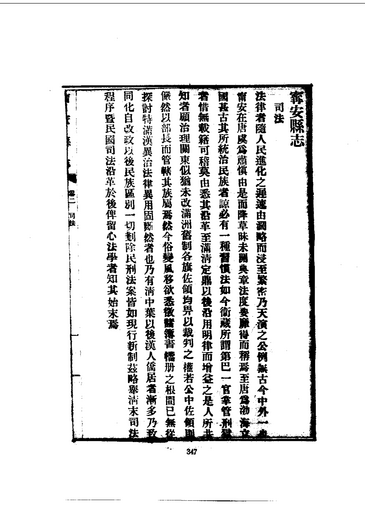 寗安縣志
司法
法律者隨人民進化之遲速由濶略而浸至繁密乃天演之公例無古今中外一也
甯安在唐虞爲肅愼由是而降草昧未闢典章法度奚得而稱焉至唐爲渤海立
國甚古其所統治民族者諒必有一種習慣法如今衛藏所謂第巴一官掌管刑
者惜無載籍可稽莫由悉其沿革至滿淸定鼎以後沿用明律而增益之是人所共
知者顧治理關東似猶未改滿洲舊制各旗佐領均畀以裁判之權若公中佐領則
儼然以部長而管轄其族屬焉然今俗變風移欲悉徵舊簿書檔册之根間已無從
探討特滿漢異治法律異用固顯然者也乃有淸中葉以後漢人僑居者漸多乃致
同化自改政以後民族區別一切剗除民刑法案皆如現行新制茲略舉淸末司法
程序暨民國司法沿革於後俾留心法學者知其始末焉
卷二
司法
347